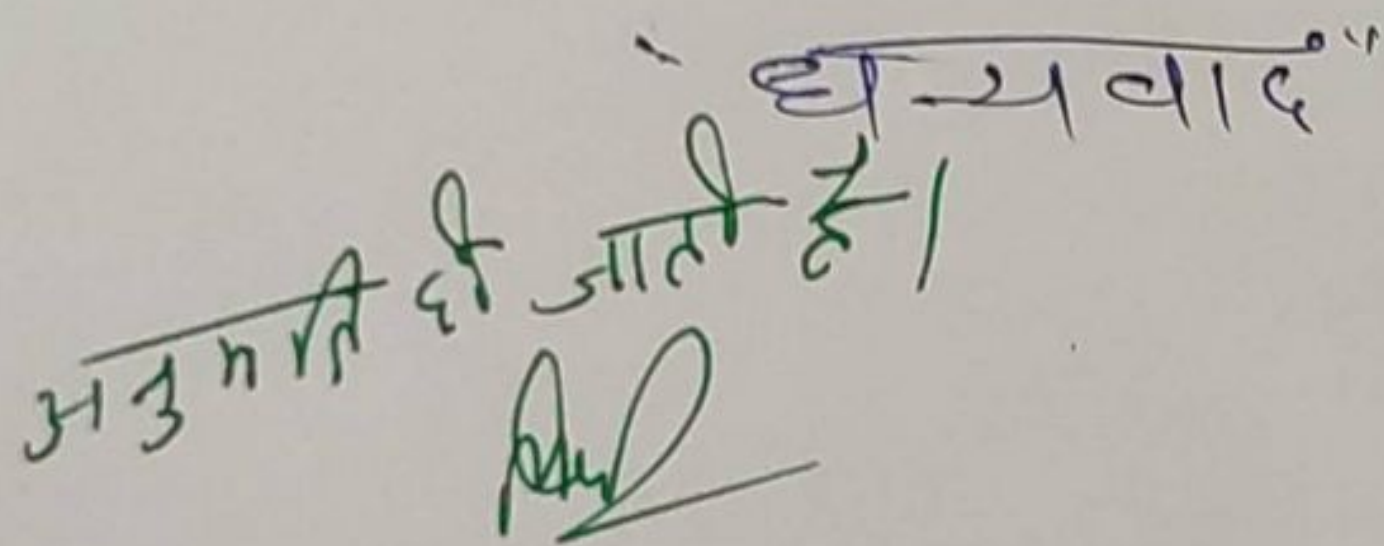 धन्यवाद"
अनुमति दी जाती है।